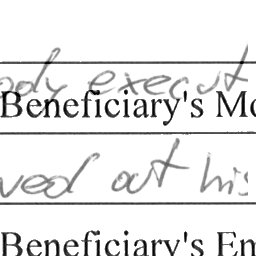 ody execut
Beneficiary's Mo
ved out his
Beneficiary's Em